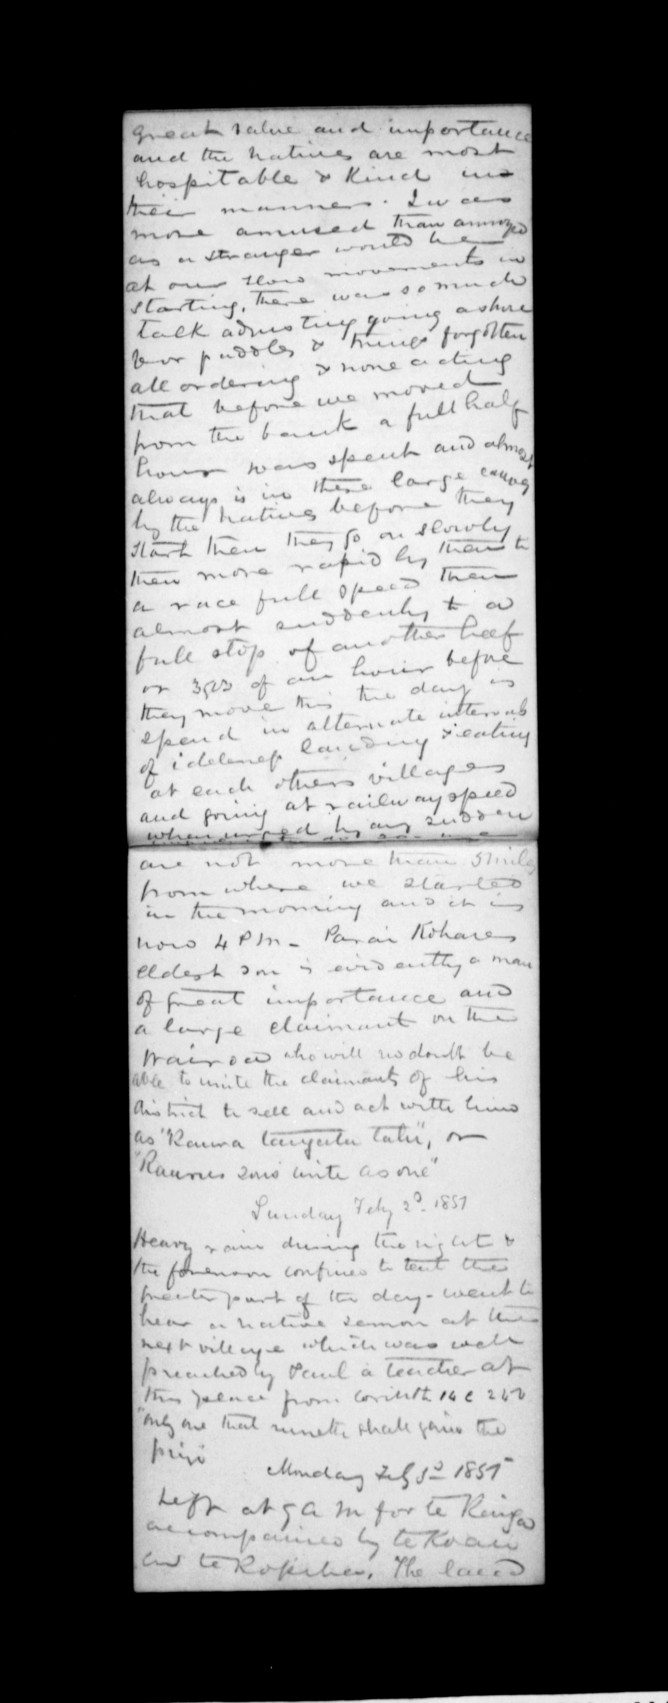 great value and importance
and the natives are most
hospitable & kind in
their manners. I was
more amused than annoyed
as a stranger would be
at our slow movements in
starting, there was so much
talk adjusting going ashore
for paddles & things forgotten
all ordering & none acting
that before we moved
from the bank a full half
hour was spent and almost
always is in these large canoes
by the natives before they
start then they go on slowly
then more rapidly then to
a race full speed then
almost suddenly to a
full stop of another half
or of an hour before
they move thus the day is
spend in alternate intervals
of idleness landing & eating
at each others villages
and going at railway speed
when urged by any sudden
are not more than 5 miles
from where we started
in the morning and it is
now 4 PM - Kohares
eldest son is evidently a man
of great importance and
a large claimant on the
Wairoa who will no doubt be
able to unite the claimants of his
district to sell and act with him
as "Raurua tangata tahi", or
sons unite as one"
Sunday Feby 2d. 1851
Heavy rain during the night &
the forenoon confined to tent the
greater part of the day - went to
hear a native sermon at the
next village which was well
preached by Paul a teacher at
this place from Corinth
"only one that runneth shall gain the
prize
Monday Feby 3d 1851
Left at 9 AM for te Reinga
accompanied by te Koari
and te Kopihea. The land